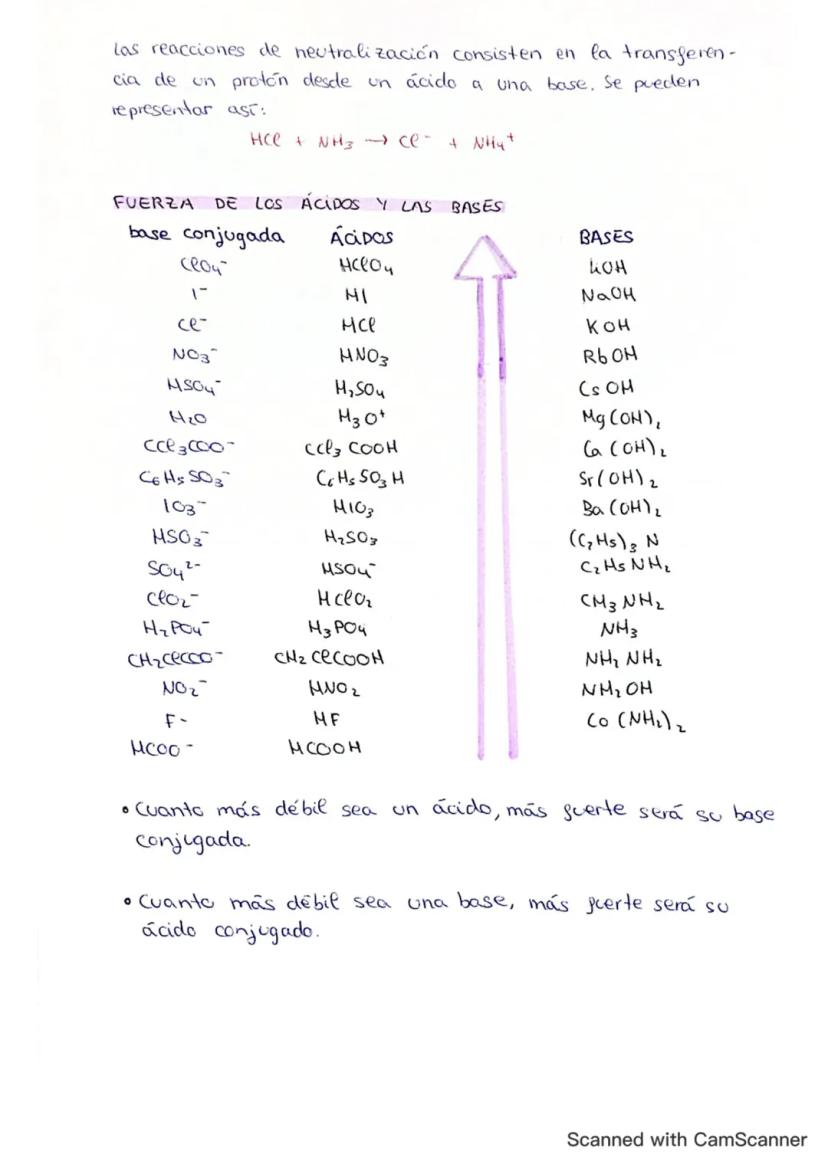 Las reacciones de neutralización consisten en la transferen-
cia de un protón desde un ácido a una base. Se pueden
representar así:
HCl + NH₃ → Cl⁻ + NH₄⁺
FUERZA DE LOS ÁCIDOS Y LAS BASES
base conjugada ÁCIDOS BASES
ClO₄⁻ HClO₄ LiOH
I⁻ HI NaOH
Cl⁻ HCl KOH
NO₃⁻ HNO₃ RbOH
HSO₄⁻ H₂SO₄ CsOH
H₂O H₃O⁺ Mg(OH)₂
CCl₃COO⁻ CCl₃COOH Ca(OH)₂
C₆H₅SO₃⁻ C₆H₅SO₃H Sr(OH)₂
IO₃⁻ HIO₃ Ba(OH)₂
HSO₃⁻ H₂SO₃ (C₂H₅)₃N
SO₄²⁻ HSO₄⁻ C₂H₅NH₂
ClO₂⁻ HClO₂ CH₃NH₂
H₂PO₄⁻ H₃PO₄ NH₃
CH₂ClCOO⁻ CH₂ClCOOH NH₂NH₂
NO₂⁻ HNO₂ NH₂OH
F⁻ HF CO(NH₂)₂
HCOO⁻ HCOOH
• Cuanto más débil sea un ácido, más fuerte será su base
conjugada.
• Cuanto más débil sea una base, más fuerte será su
ácido conjugado.
Scanned with CamScanner